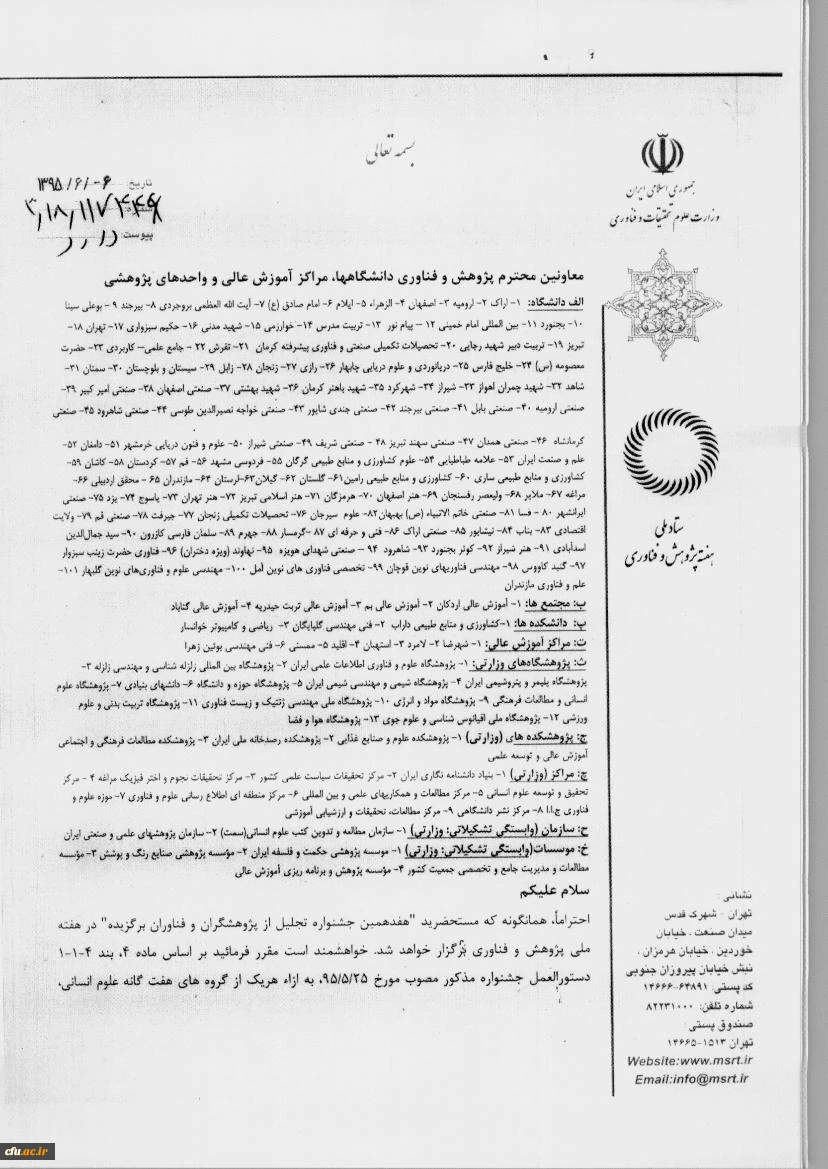 بسمه تعالی
جمهوری اسلامی ایران
وزارت علوم تحقیقات و فناوری
تاریخ: ۱۳۹۵/۶/۰۶
شماره:
پیوست: دارد
ستاد ملی
هفته پژوهش و فناوری
معاونین محترم پژوهش و فناوری دانشگاهها، مراکز آموزش عالی و واحدهای پژوهشی
الف دانشگاه: ۱- اراک ۲- ارومیه ۳- اصفهان ۴- الزهراء ۵- ایلام ۶- امام صادق (ع) ۷- آیت الله العظمی بروجردی ۸- بیرجند ۹- بوعلی سینا
۱۰- بجنورد ۱۱- بین المللی امام خمینی ۱۲- پیام نور ۱۳- تربیت مدرس ۱۴- خوارزمی ۱۵- شهید مدنی ۱۶- حکیم سبزواری ۱۷- تهران ۱۸-
تبریز ۱۹- تربیت دبیر شهید رجایی ۲۰- تحصیلات تکمیلی صنعتی و فناوری پیشرفته کرمان ۲۱- تفرش ۲۲- جامع علمی- کاربردی ۲۳- حضرت
معصومه (س) ۲۴- خلیج فارس ۲۵- دریانوردی و علوم دریایی چابهار ۲۶- رازی ۲۷- زنجان ۲۸- زابل ۲۹- سیستان و بلوچستان ۳۰- سمنان ۳۱-
شاهد ۳۲- شهید چمران اهواز ۳۳- شیراز ۳۴- شهرکرد ۳۵- شهید باهنر کرمان ۳۶- شهید بهشتی ۳۷- صنعتی اصفهان ۳۸- صنعتی امیر کبیر ۳۹-
صنعتی ارومیه ۴۰- صنعتی بابل ۴۱- صنعتی بیرجند ۴۲- صنعتی جندی شاپور ۴۳- صنعتی خواجه نصیرالدین طوسی ۴۴- صنعتی شاهرود ۴۵- صنعتی
کرمانشاه ۴۶- صنعتی همدان ۴۷- صنعتی سهند تبریز ۴۸- صنعتی شریف ۴۹- صنعتی شیراز ۵۰- علوم و فنون دریایی خرمشهر ۵۱- دامغان ۵۲-
علم و صنعت ایران ۵۳- علامه طباطبایی ۵۴- علوم کشاورزی و منابع طبیعی گرگان ۵۵- فردوسی مشهد ۵۶- قم ۵۷- کردستان ۵۸- کاشان ۵۹-
کشاورزی و منابع طبیعی ساری ۶۰- کشاورزی و منابع طبیعی رامین ۶۱- گلستان ۶۲- گیلان ۶۳- لرستان ۶۴- مازندران ۶۵- محقق اردبیلی ۶۶-
مراغه ۶۷- ملایر ۶۸- ولیعصر رفسنجان ۶۹- هنر اصفهان ۷۰- هرمزگان ۷۱- هنر اسلامی تبریز ۷۲- هنر تهران ۷۳- یاسوج ۷۴- یزد ۷۵- صنعتی
ایرانشهر ۸۰- فسا ۸۱- صنعتی خاتم الانبیاء (ص) بهبهان ۸۲- علوم سیرجان ۷۶- تحصیلات تکمیلی زنجان ۷۷- جیرفت ۷۸- صنعتی قم ۷۹- ولایت
اقتصادی ۸۳- بناب ۸۴- نیشابور ۸۵- صنعتی اراک ۸۶- فنی و حرفه ای ۸۷- گرمسار ۸۸- جهرم ۸۹- سلمان فارسی کازرون ۹۰- سید جمال‌الدین
اسدآبادی ۹۱- هنر شیراز ۹۲- کوثر بجنورد ۹۳- شاهرود ۹۴- صنعتی شهدای هویزه ۹۵- نهاوند (ویژه دختران) ۹۶- فناوری حضرت زینب سبزوار
۹۷- گنبد کاووس ۹۸- مهندسی فناوریهای نوین قوچان ۹۹- تخصصی فناوری های نوین آمل ۱۰۰- مهندسی علوم و فناوری‌های نوین گلبهار ۱۰۱-
علم و فناوری مازندران
ب: مجتمع ها: ۱- آموزش عالی اردکان ۲- آموزش عالی بم ۳- آموزش عالی تربت حیدریه ۴- آموزش عالی گناباد
پ: دانشکده ها: ۱- کشاورزی و منابع طبیعی داراب ۲- فنی مهندسی گلپایگان ۳- ریاضی و کامپیوتر خوانسار
ت: مراکز آموزش عالی: ۱- شهرضا ۲- لامرد ۳- استهبان ۴- اقلید ۵- ممسنی ۶- فنی مهندسی بوئین زهرا
ث: پژوهشگاه‌های وزارتی: ۱- پژوهشگاه علوم و فناوری اطلاعات علمی ایران ۲- پژوهشگاه بین المللی زلزله شناسی و مهندسی زلزله ۳-
پژوهشگاه پلیمر و پتروشیمی ایران ۴- پژوهشگاه شیمی و مهندسی شیمی ایران ۵- پژوهشگاه حوزه و دانشگاه ۶- دانشهای بنیادی ۷- پژوهشگاه علوم
انسانی و مطالعات فرهنگی ۹- پژوهشگاه مواد و انرژی ۱۰- پژوهشگاه ملی مهندسی ژنتیک و زیست فناوری ۱۱- پژوهشگاه تربیت بدنی و علوم
ورزشی ۱۲- پژوهشگاه ملی اقیانوس شناسی و علوم جوی ۱۳- پژوهشگاه هوا و فضا
ج: پژوهشکده های (وزارتی) ۱- پژوهشکده علوم و صنایع غذایی ۲- پژوهشکده رصدخانه ملی ایران ۳- پژوهشکده مطالعات فرهنگی و اجتماعی
آموزش عالی و توسعه علمی
چ: مراکز (وزارتی) ۱- بنیاد دانشنامه نگاری ایران ۲- مرکز تحقیقات سیاست علمی کشور ۳- مرکز تحقیقات نجوم و اختر فیزیک مراغه ۴- مرکز
تحقیق و توسعه علوم انسانی ۵- مرکز مطالعات و همکاریهای علمی و بین المللی ۶- مرکز منطقه ای اطلاع رسانی علوم و فناوری ۷- موزه علوم و
فناوری ج.ا.ا ۸- مرکز نشر دانشگاهی ۹- مرکز مطالعات، تحقیقات و ارزشیابی آموزشی
ح: سازمان (وابستگی تشکیلاتی: وزارتی) ۱- سازمان مطالعه و تدوین کتب علوم انسانی(سمت) ۲- سازمان پژوهشهای علمی و صنعتی ایران
خ: موسسات(وابستگی تشکیلاتی: وزارتی) ۱- موسسه پژوهشی حکمت و فلسفه ایران ۲- مؤسسه پژوهشی صنایع رنگ و پوشش ۳- مؤسسه
مطالعات و مدیریت جامع و تخصصی جمعیت کشور ۴- مؤسسه پژوهش و برنامه ریزی آموزش عالی
سلام علیکم
احتراماً، همانگونه که مستحضرید "هفدهمین جشنواره تجلیل از پژوهشگران و فناوران برگزیده" در هفته
ملی پژوهش و فناوری برگزار خواهد شد. خواهشمند است مقرر فرمائید بر اساس ماده ۴، بند ۴-۱-۱
دستورالعمل جشنواره مذکور مصوب مورخ ۹۵/۵/۲۵، به ازاء هریک از گروه های هفت گانه علوم انسانی،
نشانی:
تهران - شهرک قدس
میدان صنعت، خیابان
خوردین، خیابان هرمزان،
نبش خیابان پیروزان جنوبی
کد پستی: ۶۴۸۹۱-۱۴۶۶۶
شماره تلفن: ۸۲۲۳۱۰۰۰
صندوق پستی:
تهران ۱۵۱۳-۱۴۶۶۵
Website:www.msrt.ir
Email:info@msrt.ir
cfu.ac.ir